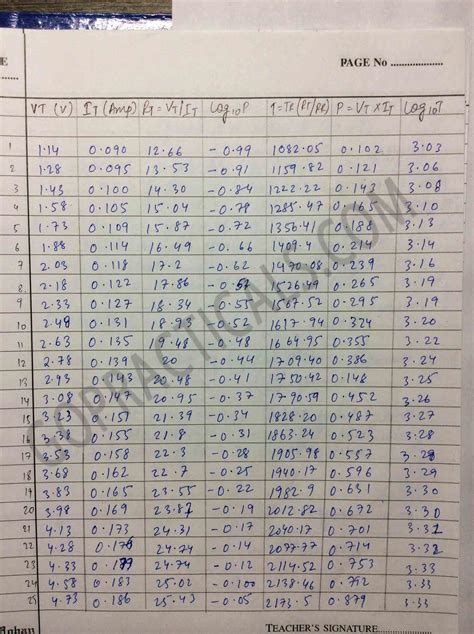 PAGE No ..................
VT (V) IT (Amp) RT = VT/IT Log10P T=TR(RT/RR) P = VT X IT Log10T
1 1.14 0.090 12.66 -0.99 1082.05 0.102 3.03
2 1.28 0.095 13.53 -0.91 1159.82 0.121 3.06
3 1.43 0.100 14.30 -0.84 1222.22 0.143 3.08
4 1.58 0.105 15.04 -0.78 1285.47 0.165 3.10
5 1.73 0.109 15.87 -0.72 1356.41 0.188 3.13
6 1.88 0.114 16.49 -0.66 1409.4 0.214 3.14
7 2.03 0.118 17.2 -0.62 1470.08 0.239 3.16
8 2.18 0.122 17.86 -0.57 1526.49 0.265 3.19
9 2.33 0.127 18.34 -0.55 1567.52 0.295 3.19
10 2.48 0.131 18.93 -0.52 1617.94 0.324 3.20
11 2.63 0.135 19.48 -0.48 1664.95 0.355 3.22
12 2.78 0.139 20 -0.44 1709.40 0.386 3.24
13 2.93 0.143 20.48 -0.41 1750.42 0.148 3.25
14 3.08 0.147 20.95 -0.37 1790.59 0.452 3.26
15 3.23 0.151 21.39 -0.34 1828.20 0.487 3.27
16 3.38 0.155 21.8 -0.31 1863.24 0.523 3.28
17 3.53 0.158 22.3 -0.28 1905.98 0.557 3.29
18 3.68 0.162 22.7 -0.25 1940.17 0.596 3.29
19 3.83 0.165 23.55 -0.22 1982.9 0.631 3.30
20 3.98 0.169 23.87 -0.19 2012.82 0.672 3.30
21 4.13 0.173 24.31 -0.17 2040.17 0.701 3.31
22 4.28 0.176 24.74 -0.14 2077.77 0.714 3.32
23 4.33 0.177 24.74 -0.12 2114.52 0.753 3.33
24 4.58 0.183 25.02 -0.100 2138.46 0.792 3.33
25 4.73 0.186 25.43 -0.05 2173.5 0.879 3.33
TEACHER'S SIGNATURE
COPRACTICALS.COM